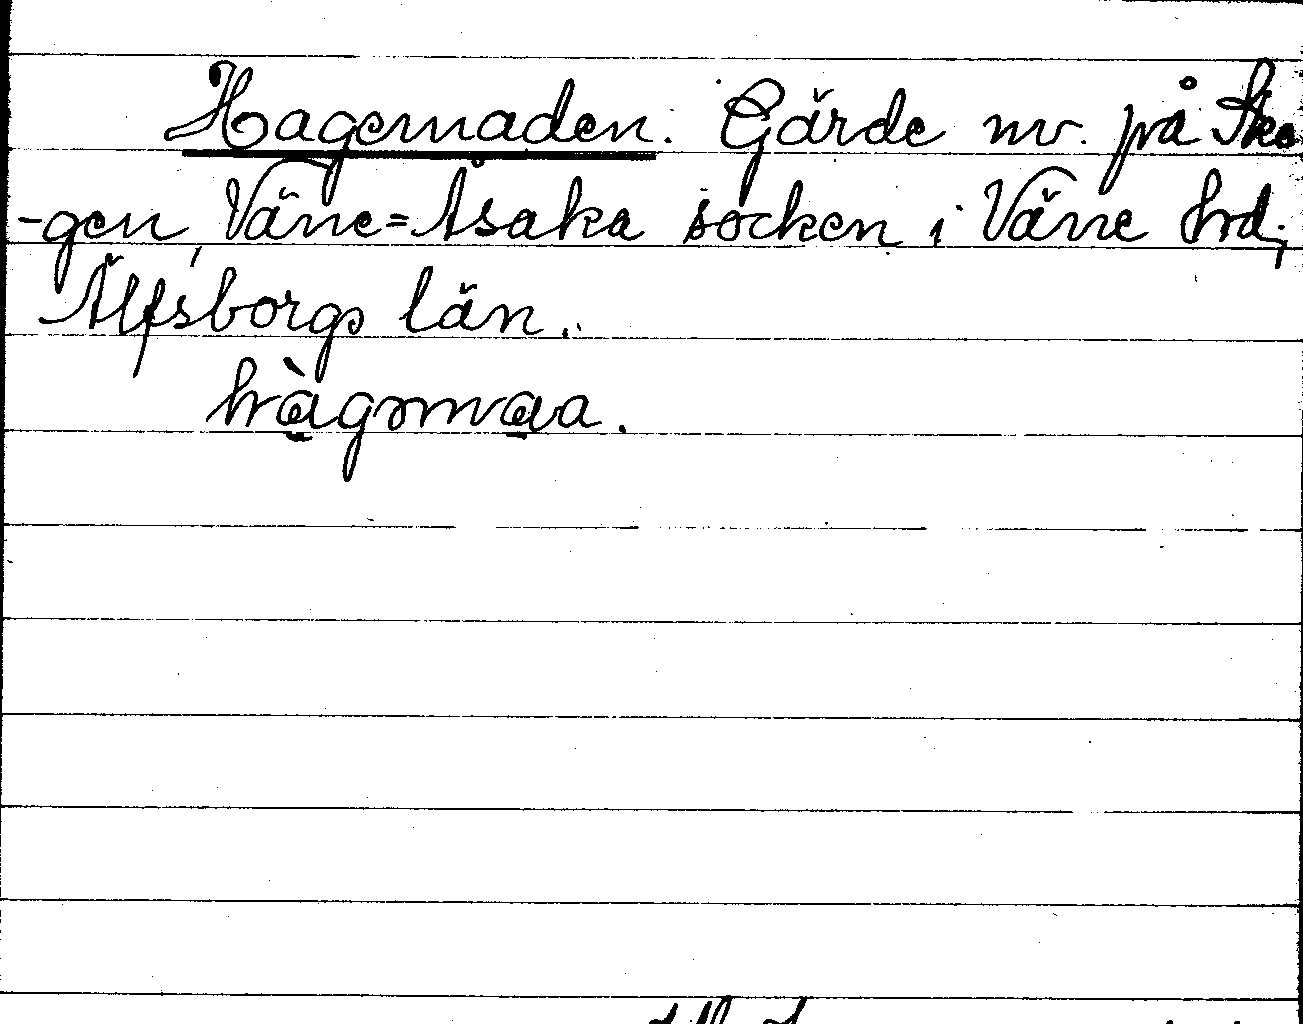 Hagemaden. Gärde nv. på Sko
-gen, Väne=Åsaka socken i Väne hrd;
Älfsborgs län.
hàgomaa.